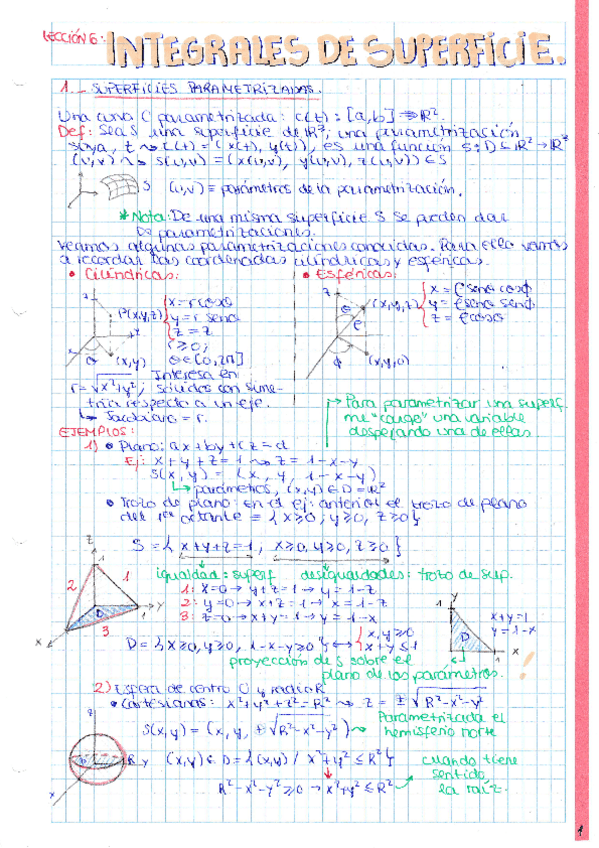 LECCIÓN 6: INTEGRALES DE SUPERFICIE.
1. SUPERFICIES PARAMETRIZADAS.
Una curva C parametrizada: c(t): [a,b] → R².
Def: Sea S una superficie de R³, una parametrización
suya, t ↝ c(t) = (x(t), y(t)), es una función s: D ⊆ R² → R³
(u,v) ↝ s(u,v) = (x(u,v), y(u,v), z(u,v)) ∈ S
S (u,v) = parámetros de la parametrización.
* Nota: De una misma superficie S se pueden dar
∞ parametrizaciones.
Veamos algunas parametrizaciones conocidas. Para ello vamos
a recordar las coordenadas cilíndricas y esféricas.
• Cilíndricas:
z
P(x,y,z)
y
x
θ
(x,y)
{ x = r cosθ
y = r senθ
z = z
r ≥ 0;
θ ∈ [0, 2π]
Interesa en
r = √x²+y²; sólidos con sime-
tría respecto a un eje.
↳ Jacobiano = r.
• Esféricas:
z
(x,y,z)
θ
ρ
φ
(x,y,0)
{ x = ρ senθ cosφ
y = ρ senθ senφ
z = ρ cosθ
Para parametrizar una superf.
me "cargo" una variable
despejando una de ellas.
EJEMPLOS:
1) • Plano: ax + by + cz = d
Ej: x + y + z = 1 ↝ z = 1 - x - y
S(x, y) = (x, y, 1 - x - y)
↳ parámetros, (x,y) ∈ D = R²
• Trozo de plano: en el ej. anterior el trozo de plano
del 1er octante = { x ≥ 0, y ≥ 0, z ≥ 0 }
S = { x+y+z=1, x ≥ 0, y ≥ 0, z ≥ 0 }
igualdad: superf desigualdades: trozo de sup.
1: x=0 → y+z=1 → y = 1-z
2: y=0 → x+z=1 → x = 1-z
3: z=0 → x+y=1 → y = 1-x
z
2
1
D
3
1
y
x
D = { x ≥ 0, y ≥ 0, 1-x-y ≥ 0 } ↔ { x,y ≥ 0
x+y ≤ 1
proyección de S sobre el
plano de los parámetros. !
y
1
D
1
x+y=1
y = 1-x
2) Esfera de centro O y radio R
• Cartesianas: x²+y²+z² = R² ↝ z = ± √R²-x²-y²
S(x,y) = (x, y, +√R²-x²-y²) ↝ Parametrizada el
hemisferio norte
z
R
y
x
(x,y) ∈ D = { (x,y) / x²+y² ≤ R² }
R²-x²-y² ≥ 0 → x²+y² ≤ R²
cuando tiene
sentido
la raíz.
1